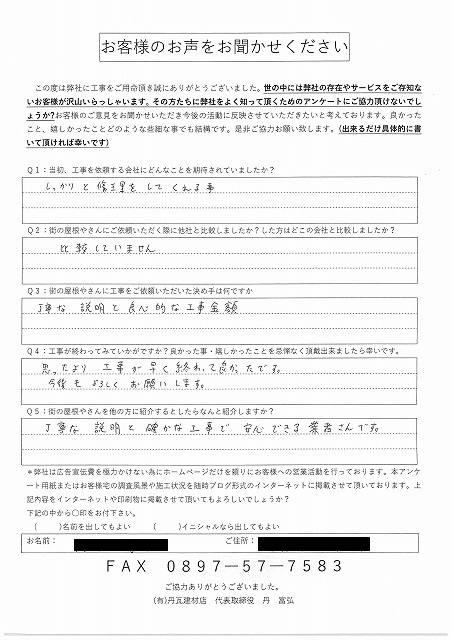 お客様のお声をお聞かせください
この度は弊社に工事をご用命頂き誠にありがとうございました。世の中には弊社の存在やサービスをご存知な
いお客様が沢山いらっしゃいます。その方たちに弊社をよく知って頂くためのアンケートにご協力頂けないでし
ょうか?お客様のご意見をお聞かせいただき今後の活動に反映させていただきたいと考えております。良かった
こと、嬉しかったことどのような些細な事でも結構です。是非ご協力お願い致します。(出来るだけ具体的に書
いて頂ければ幸いです)
Q1:当初、工事を依頼する会社にどんなことを期待されていましたか?
しっかりと修理をしてくれる事
Q2:街の屋根やさんにご依頼いただく際に他社と比較しましたか?した方はどこの会社と比較しましたか?
比較していません
Q3:街の屋根やさんに工事をご依頼いただいた決め手は何ですか
丁寧な説明と良心的な工事金額
Q4:工事が終わってみていかがですか?良かった事・嬉しかったことを忌憚なく頂戴出来ましたら幸いです。
思ったより工事が早く終わって良かったです。
今後もよろしくお願いします。
Q5:街の屋根やさんを他の方に紹介するとしたらなんと紹介しますか?
丁寧な説明と確かな工事で安心できる業者さんです。
*弊社は広告宣伝費を極力かけない為にホームページだけを頼りにお客様への営業活動を行っております。本アンケ
ート用紙またはお客様宅の調査風景や施工状況を随時ブログ形式のインターネットに掲載させて頂いております。上
記内容をインターネットや印刷物に掲載させて頂いてもよろしいでしょうか?
下記の中から〇印をお付下さい。
( )名前を出してもよい ( )イニシャルなら出してもよい
お名前: ご住所:
FAX 0897-57-7583
ご協力ありがとうございました。
(有)丹瓦建材店 代表取締役 丹 富弘